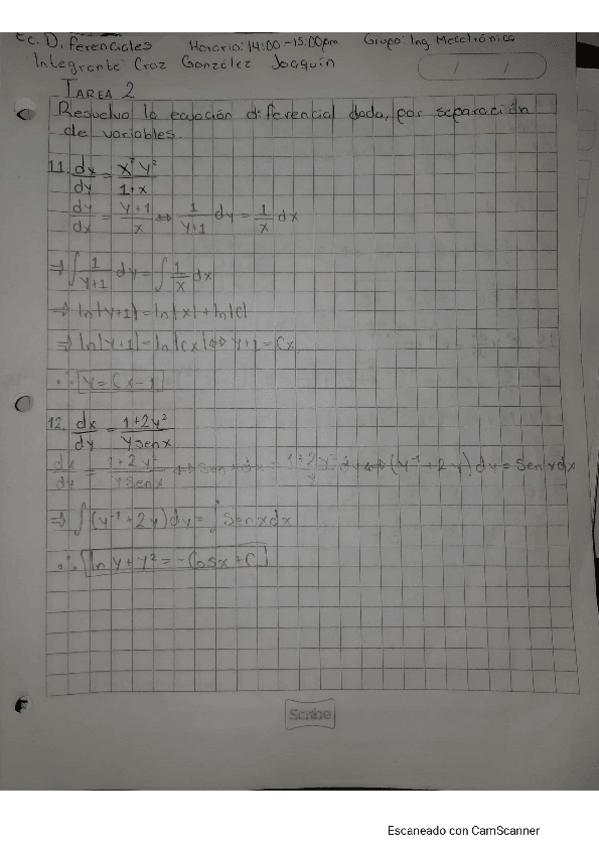 Ec. Diferenciales Horario: 14:00-15:00pm Grupo: Ing Mecatrónica
Integrante Croz González Joaquín
TAREA 2
Resuelva la ecuación diferencial dada, por separación
de variables.
11. dx/dy = x²y²/1+x
dy/dx = y+1/x ⇔ 1/y+1 dy = 1/x dx
⇒ ∫ 1/y+1 dy = ∫ 1/x dx
⇒ ln|y+1| = ln|x| + ln|c|
⇒ ln|y+1| = ln|cx| ⇔ y+1 = Cx
∴ y = Cx-1
12. dx/dy = 1+2y²/y sen x
dx/dy = 1+2y²/y sen x ⇔ Sen x dx = 1+2y²/y dy ⇔ (y⁻¹+2y) dy = Sen x dx
⇒ ∫ (y⁻¹+2y) dy = ∫ Sen x dx
∴ ln y + y² = -Cos x + C
Scribe
Escaneado con CamScanner